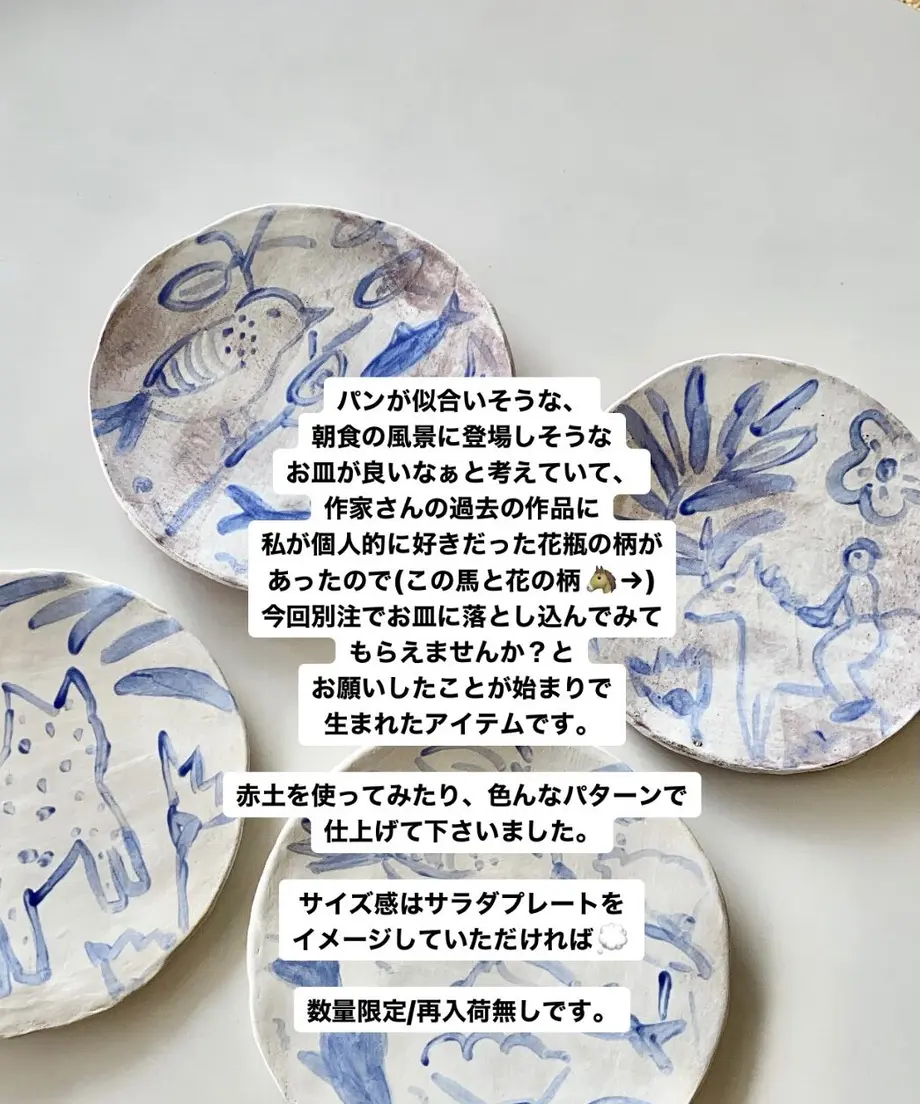 パンが似合いそうな、
朝食の風景に登場しそうな
お皿が良いなぁと考えていて、
作家さんの過去の作品に
私が個人的に好きだった花瓶の柄が
あったので(この馬と花の柄🐴→)
今回別注でお皿に落とし込んでみて
もらえませんか？と
お願いしたことが始まりで
生まれたアイテムです。
赤土を使ってみたり、色んなパターンで
仕上げて下さいました。
サイズ感はサラダプレートを
イメージしていただければ💭
数量限定/再入荷無しです。